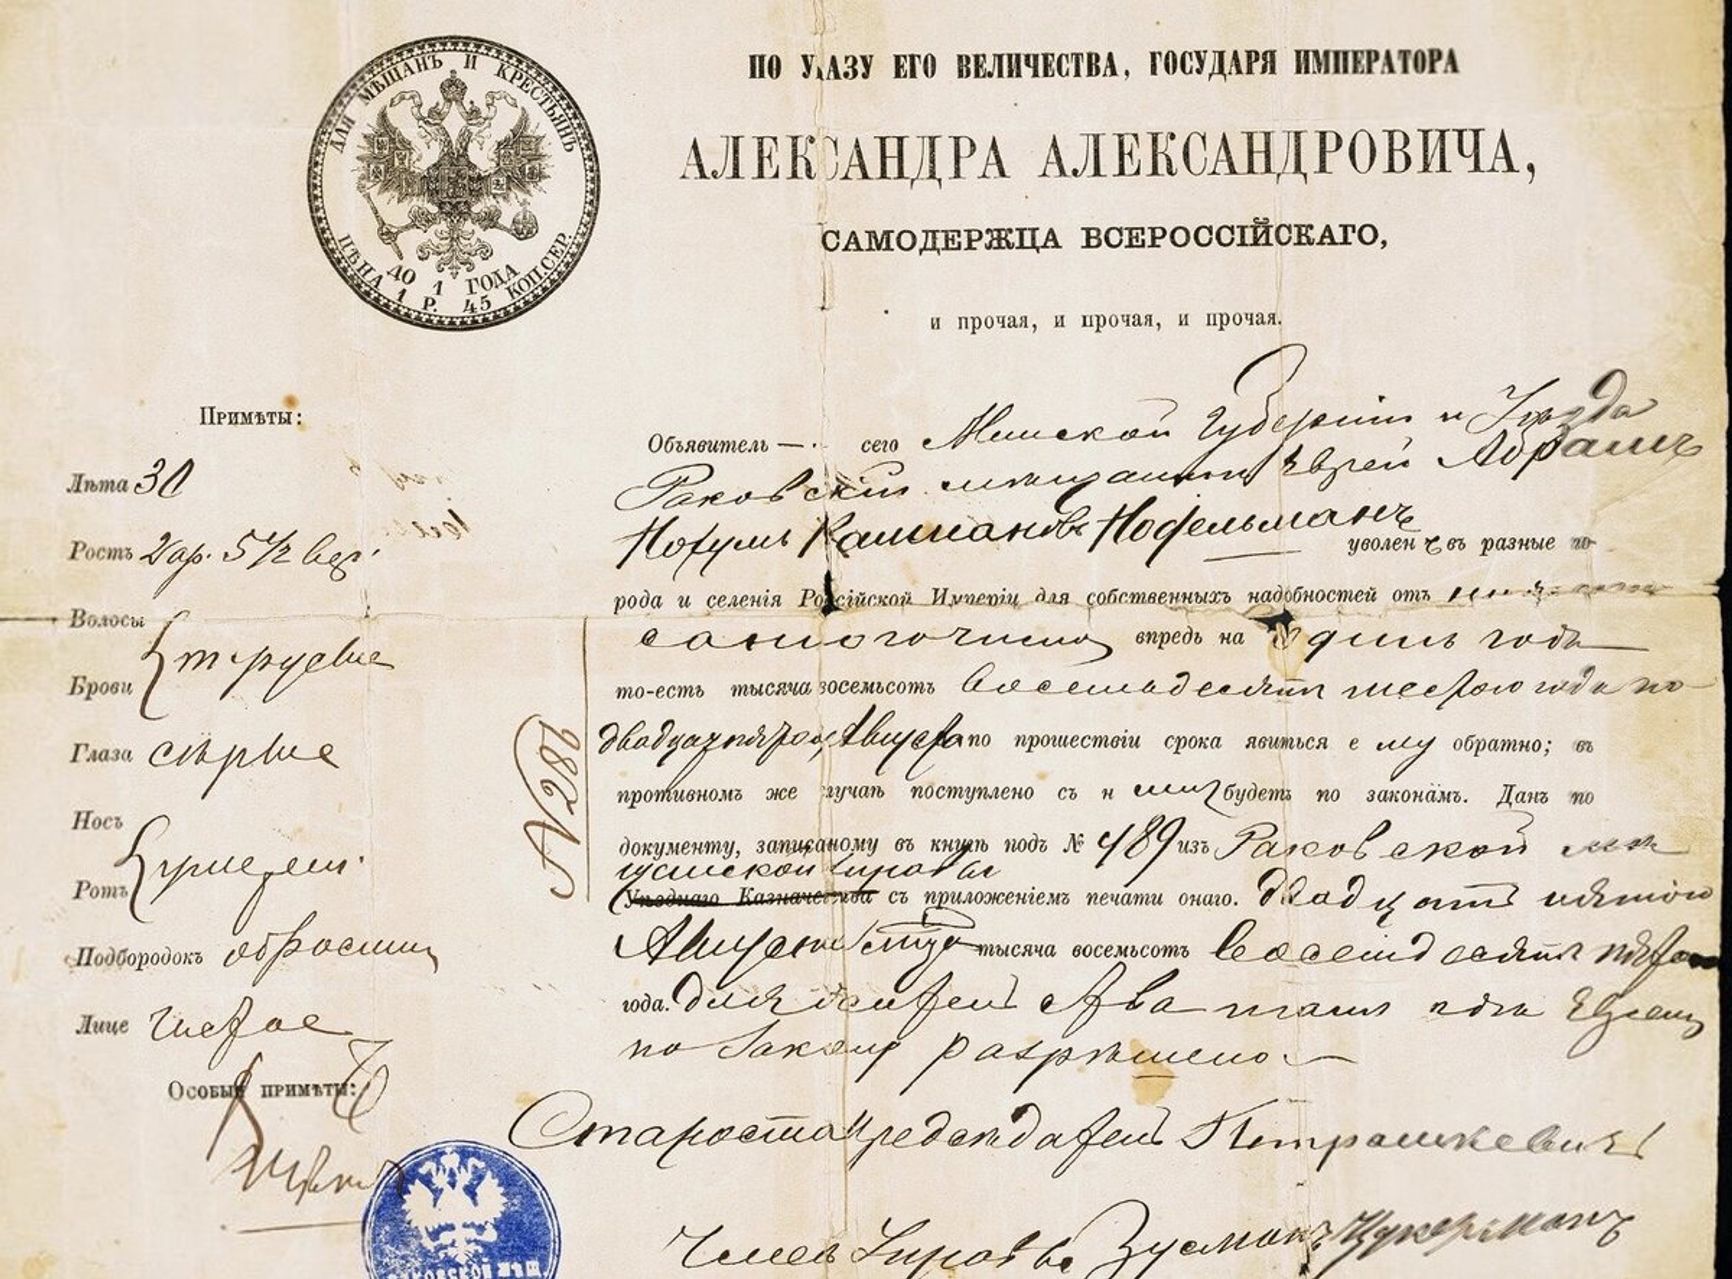 ДЛЯ МѢЩАНЪ И КРЕСТЬЯНЪ
ДО 1 ГОДА
ЦѢНА 1 Р. 45 КОП. СЕР.
ПО УКАЗУ ЕГО ВЕЛИЧЕСТВА, ГОСУДАРЯ ИМПЕРАТОРА
АЛЕКСАНДРА АЛЕКСАНДРОВИЧА,
САМОДЕРЖЦА ВСЕРОССІЙСКАГО,
и прочая, и прочая, и прочая.
Примѣты:
Лѣта 30
Ростъ 2 ар. 5 1/2 вер.
Волосы
Брови русые
Глаза сѣрые
Носъ
Ротъ умѣрен.
Подбородокъ обросший
Лице чистое
Особыя примѣты:
№ 286
Объявитель — сего Минской Губерніи и Уѣзда
Раковскій мѣщанинъ Еврей Абрамъ
Нохумъ Нофельманъ уволенъ въ разные го-
рода и селенія Россійской Имперіи для собственныхъ надобностей отъ нижеписаннаго
числа впредь на Одинъ годъ
то-есть тысяча восемьсотъ восемьдесятъ шестого года по
двадцать пятое Августа по прошествіи срока явиться ему обратно; въ
противномъ же случаѣ поступлено съ нимъ будетъ по законамъ. Данъ по
документу, записаному въ книгѣ подъ № 489 изъ Раковской мѣ
щанской Управы
Уѣзднаго Казначейства съ приложеніемъ печати онаго. двадцать пятого
Августа тысяча восемьсотъ восемьдесятъ пятого
года. для
по Закону разрѣшено
Староста Предсѣдатель Петрашкевичъ
Членъ Управы Зусманъ Цукерманъ